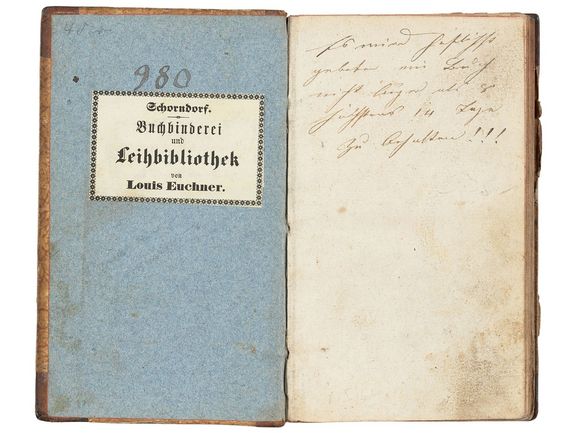 980
Schorndorf.
Buchbinderei
und
Leihbibliothek
von
Louis Euchner.
Es wird höflichst
gebeten ein Buch
nicht länger als 8
höchstens 14 Tage
zu behalten!!!